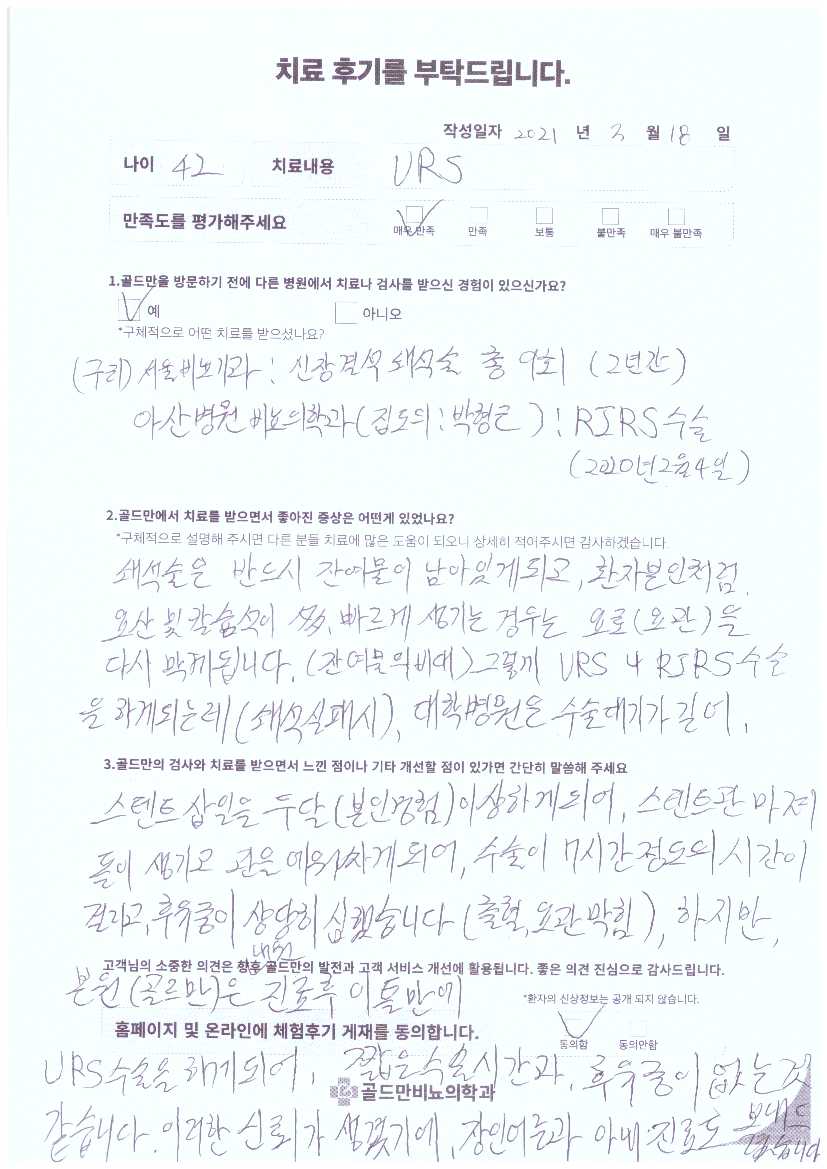 치료 후기를 부탁드립니다.
작성일자 2021 년 3 월 18 일
나이 42 치료내용 URS
만족도를 평가해주세요
매우 만족 만족 보통 불만족 매우 불만족
1.골드만을 방문하기 전에 다른 병원에서 치료나 검사를 받으신 경험이 있으신가요?
예 아니오
*구체적으로 어떤 치료를 받으셨나요?
(구리) 서울비뇨기과 : 신장결석 쇄석술 총 9회 (2년간)
아산병원 비뇨의학과 (집도의 : 박형근) : RIRS 수술
(2020년 2월 4일)
2.골드만에서 치료를 받으면서 좋아진 증상은 어떤게 있었나요?
*구체적으로 설명해 주시면 다른 분들 치료에 많은 도움이 되오니 상세히 적어주시면 감사하겠습니다
쇄석술은 반드시 잔여물이 남아있게되고, 환자본인처럼
요산 및 칼슘석이 多, 빠르게 생기는 경우는 요로(요관)을
다시 막게됩니다. (잔여물의비대) 그렇게 URS 나 RIRS 수술
을 하게되는데 (쇄석실패시), 대학병원은 수술대기가 길어,
3.골드만의 검사와 치료를 받으면서 느낀 점이나 기타 개선할 점이 있가면 간단히 말씀해 주세요
스텐트삽입을 두달 (본인경험) 이상하게되어, 스텐트관 마저
돌이 생기고 관을 하게되어, 수술이 7시간정도의 시간이
걸리고, 후유증이 상당히 심했습니다 (출혈, 요관막힘), 하지만,
고객님의 소중한 의견은 향후 골드만의 발전과 고객 서비스 개선에 활용됩니다. 좋은 의견 진심으로 감사드립니다.
내원
본원 (골드만)은 진료후 이틀만에
*환자의 신상정보는 공개 되지 않습니다.
홈페이지 및 온라인에 체험후기 게재를 동의합니다. 동의함 동의안함
URS 수술을 하게되어, 짧은수술시간과, 후유증이 없는것
골드만비뇨의학과
같습니다. 이러한 신뢰가 생겼기에, 장인어른과 아버 진료도